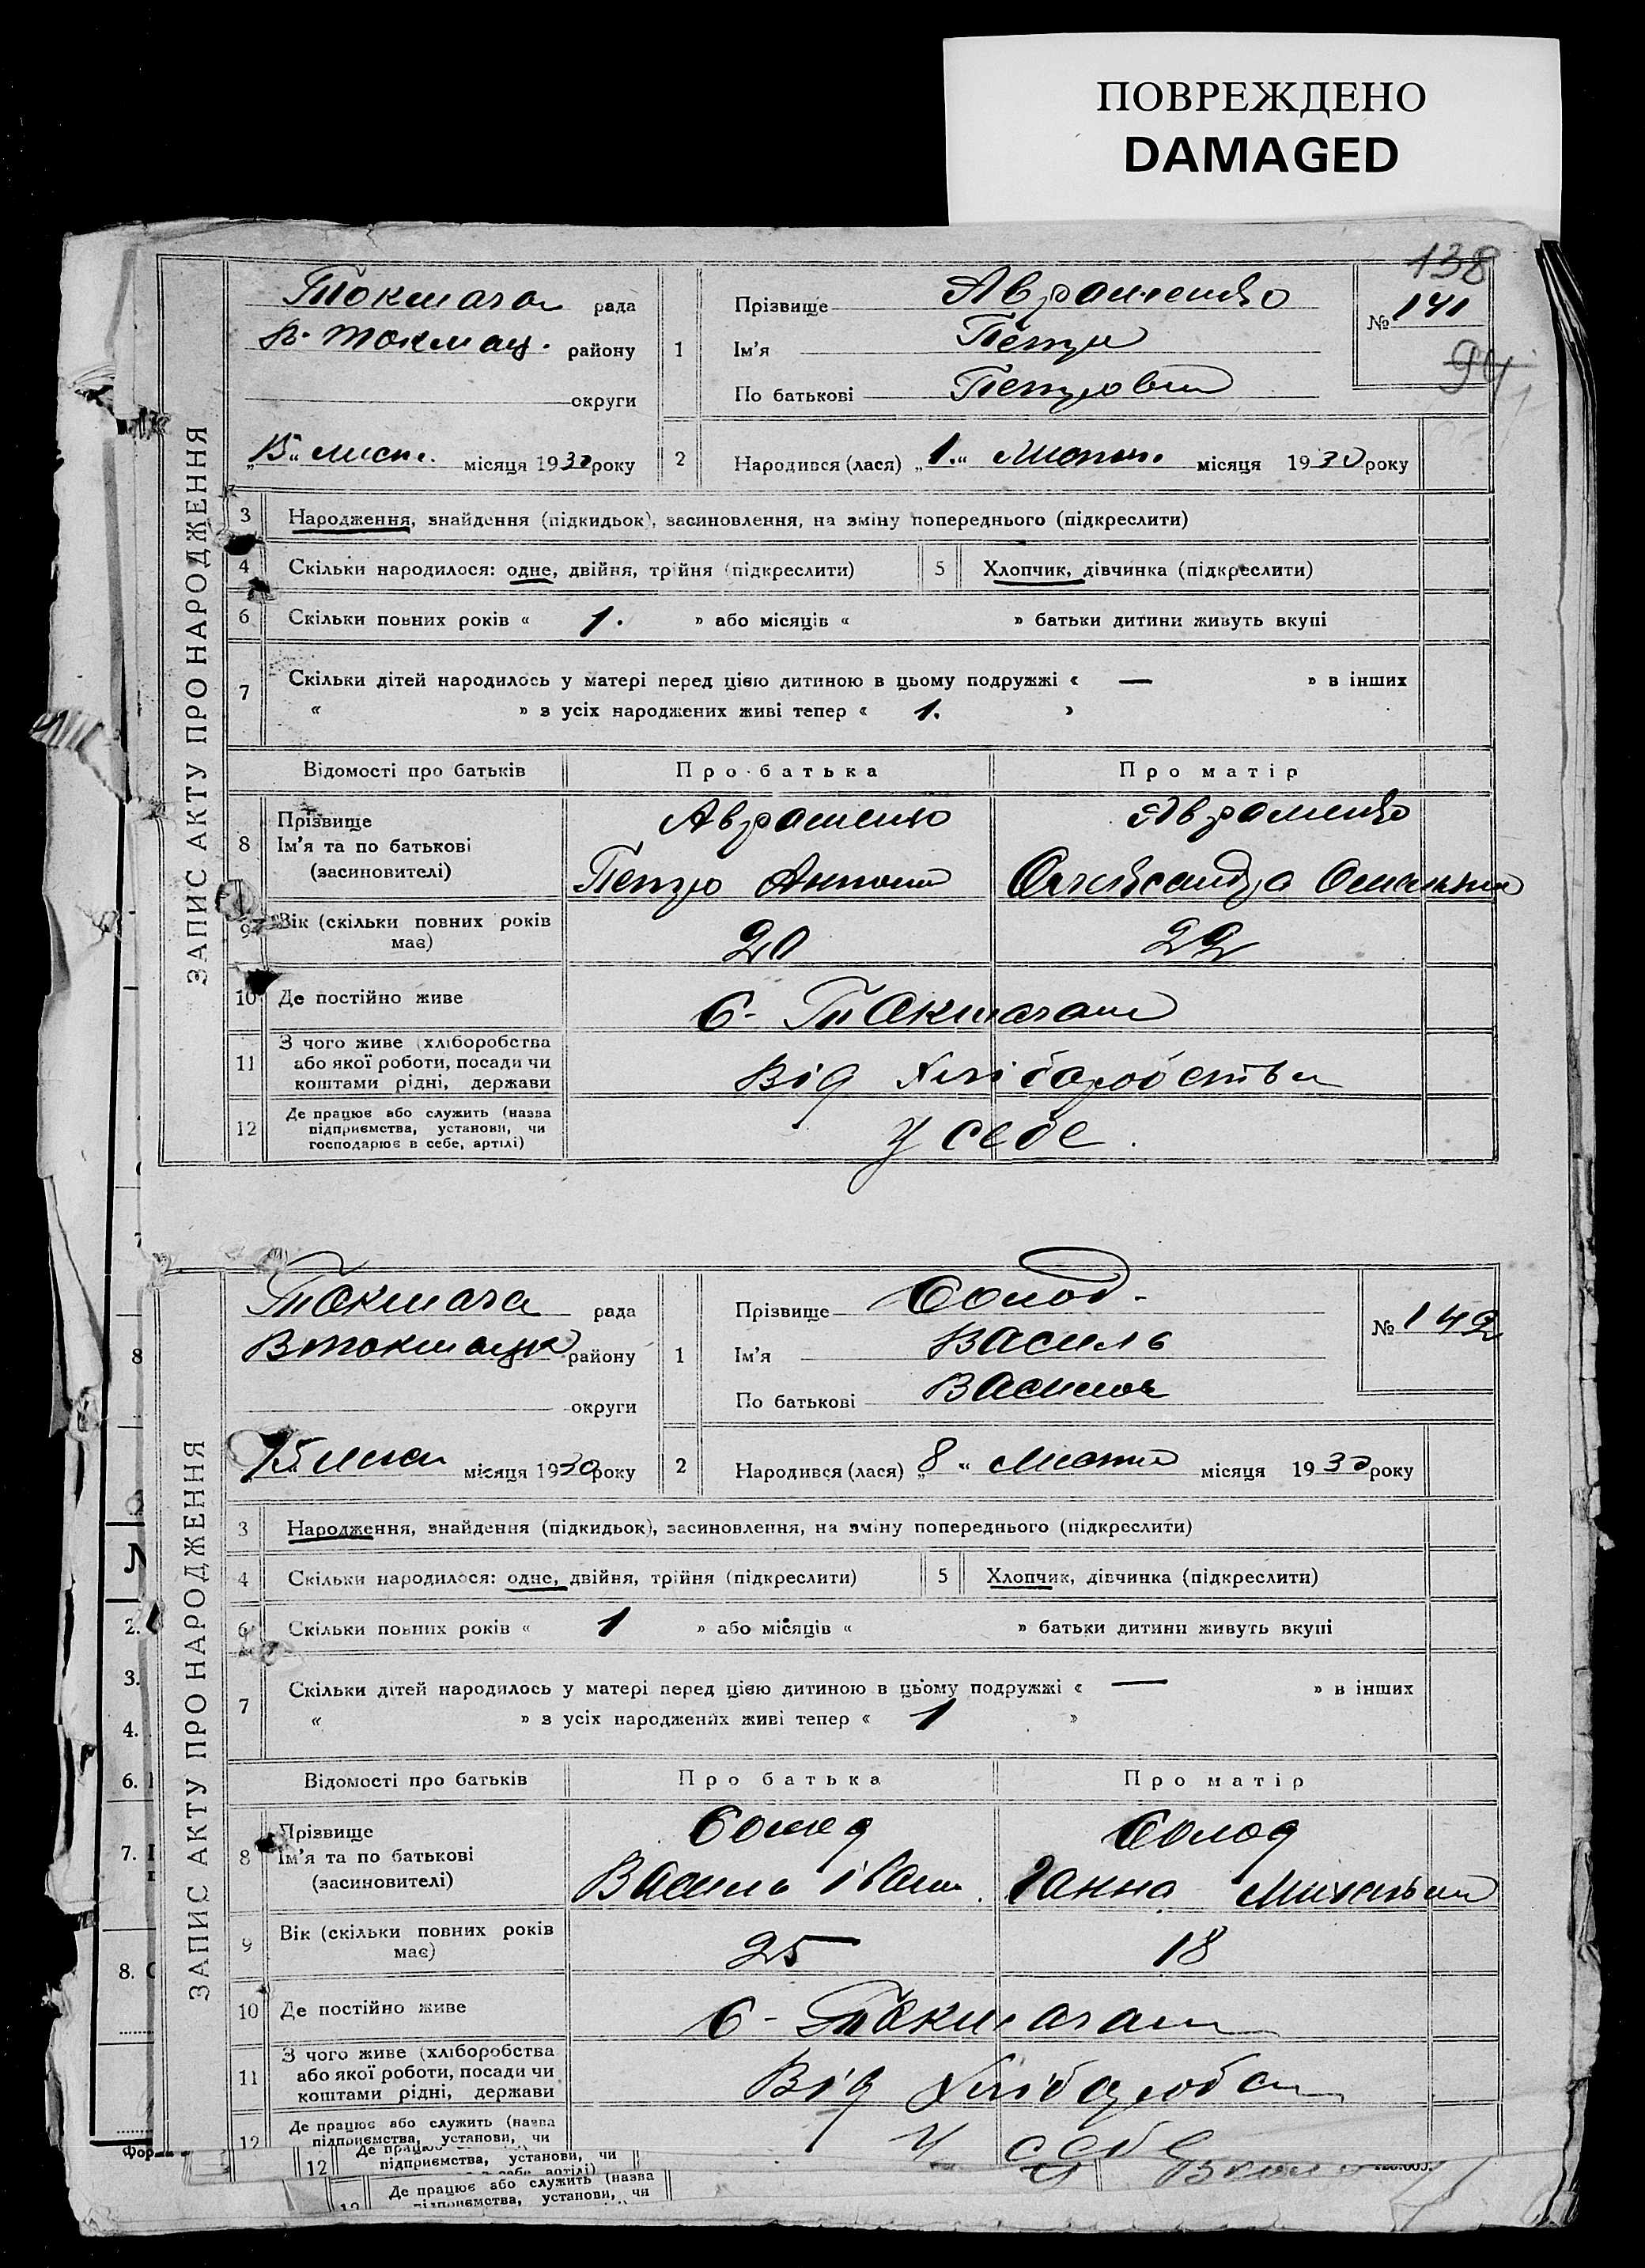 ПОВРЕЖДЕНО
DAMAGED
138
рада
Прізвище Авраменко
№ 141
району
1
Ім'я Петро
94
округи
По батькові Петрович
місяця 1930 року
2
Народився (лася) „1.“ місяця 1930 року
ЗАПИС АКТУ ПРО НАРОДЖЕННЯ
3 Народження, знайдення (підкидьок), засиновлення, на зміну попереднього (підкреслити)
4 Скільки народилося: одне, двійня, трійня (підкреслити) 5 Хлопчик, дівчинка (підкреслити)
6 Скільки повних років « 1. » або місяців « » батьки дитини живуть вкупі
7 Скільки дітей народилось у матері перед цією дитиною в цьому подружжі « — » в інших
« » з усіх народжених живі тепер « 1. »
Відомості про батьків Про батька Про матір
8 Прізвище Авраменко Авраменко
Ім'я та по батькові
(засиновителі) Петро Антон Олександра
9 Вік (скільки повних років має) 20 22
10 Де постійно живе с.
11 З чого живе (хліборобства
або якої роботи, посади чи
коштами рідні, держави від хліборобства
12 Де працює або служить (назва
підприємства, установи, чи
господарює в себе, артілі) у себе.
рада
Прізвище Солод.
№ 142
району
1
Ім'я Василь
округи
По батькові
місяця 1930 року
2
Народився (лася) „8“ місяця 1930 року
ЗАПИС АКТУ ПРО НАРОДЖЕННЯ
3 Народження, знайдення (підкидьок), засиновлення, на зміну попереднього (підкреслити)
4 Скільки народилося: одне, двійня, трійня (підкреслити) 5 Хлопчик, дівчинка (підкреслити)
6 Скільки повних років « 1 » або місяців « » батьки дитини живуть вкупі
7 Скільки дітей народилось у матері перед цією дитиною в цьому подружжі « — » в інших
« » з усіх народжених живі тепер « 1 »
Відомості про батьків Про батька Про матір
8 Прізвище Солод Солод
Ім'я та по батькові
(засиновителі) Василь Іван. Ганна
9 Вік (скільки повних років має) 25 18
10 Де постійно живе с.
11 З чого живе (хліборобства
або якої роботи, посади чи
коштами рідні, держави від
12 Де працює або служить (назва
підприємства, установи, чи
у себе
12 підприємства, установи, чи
Де працює або служить (назва
підприємства, установи, чи